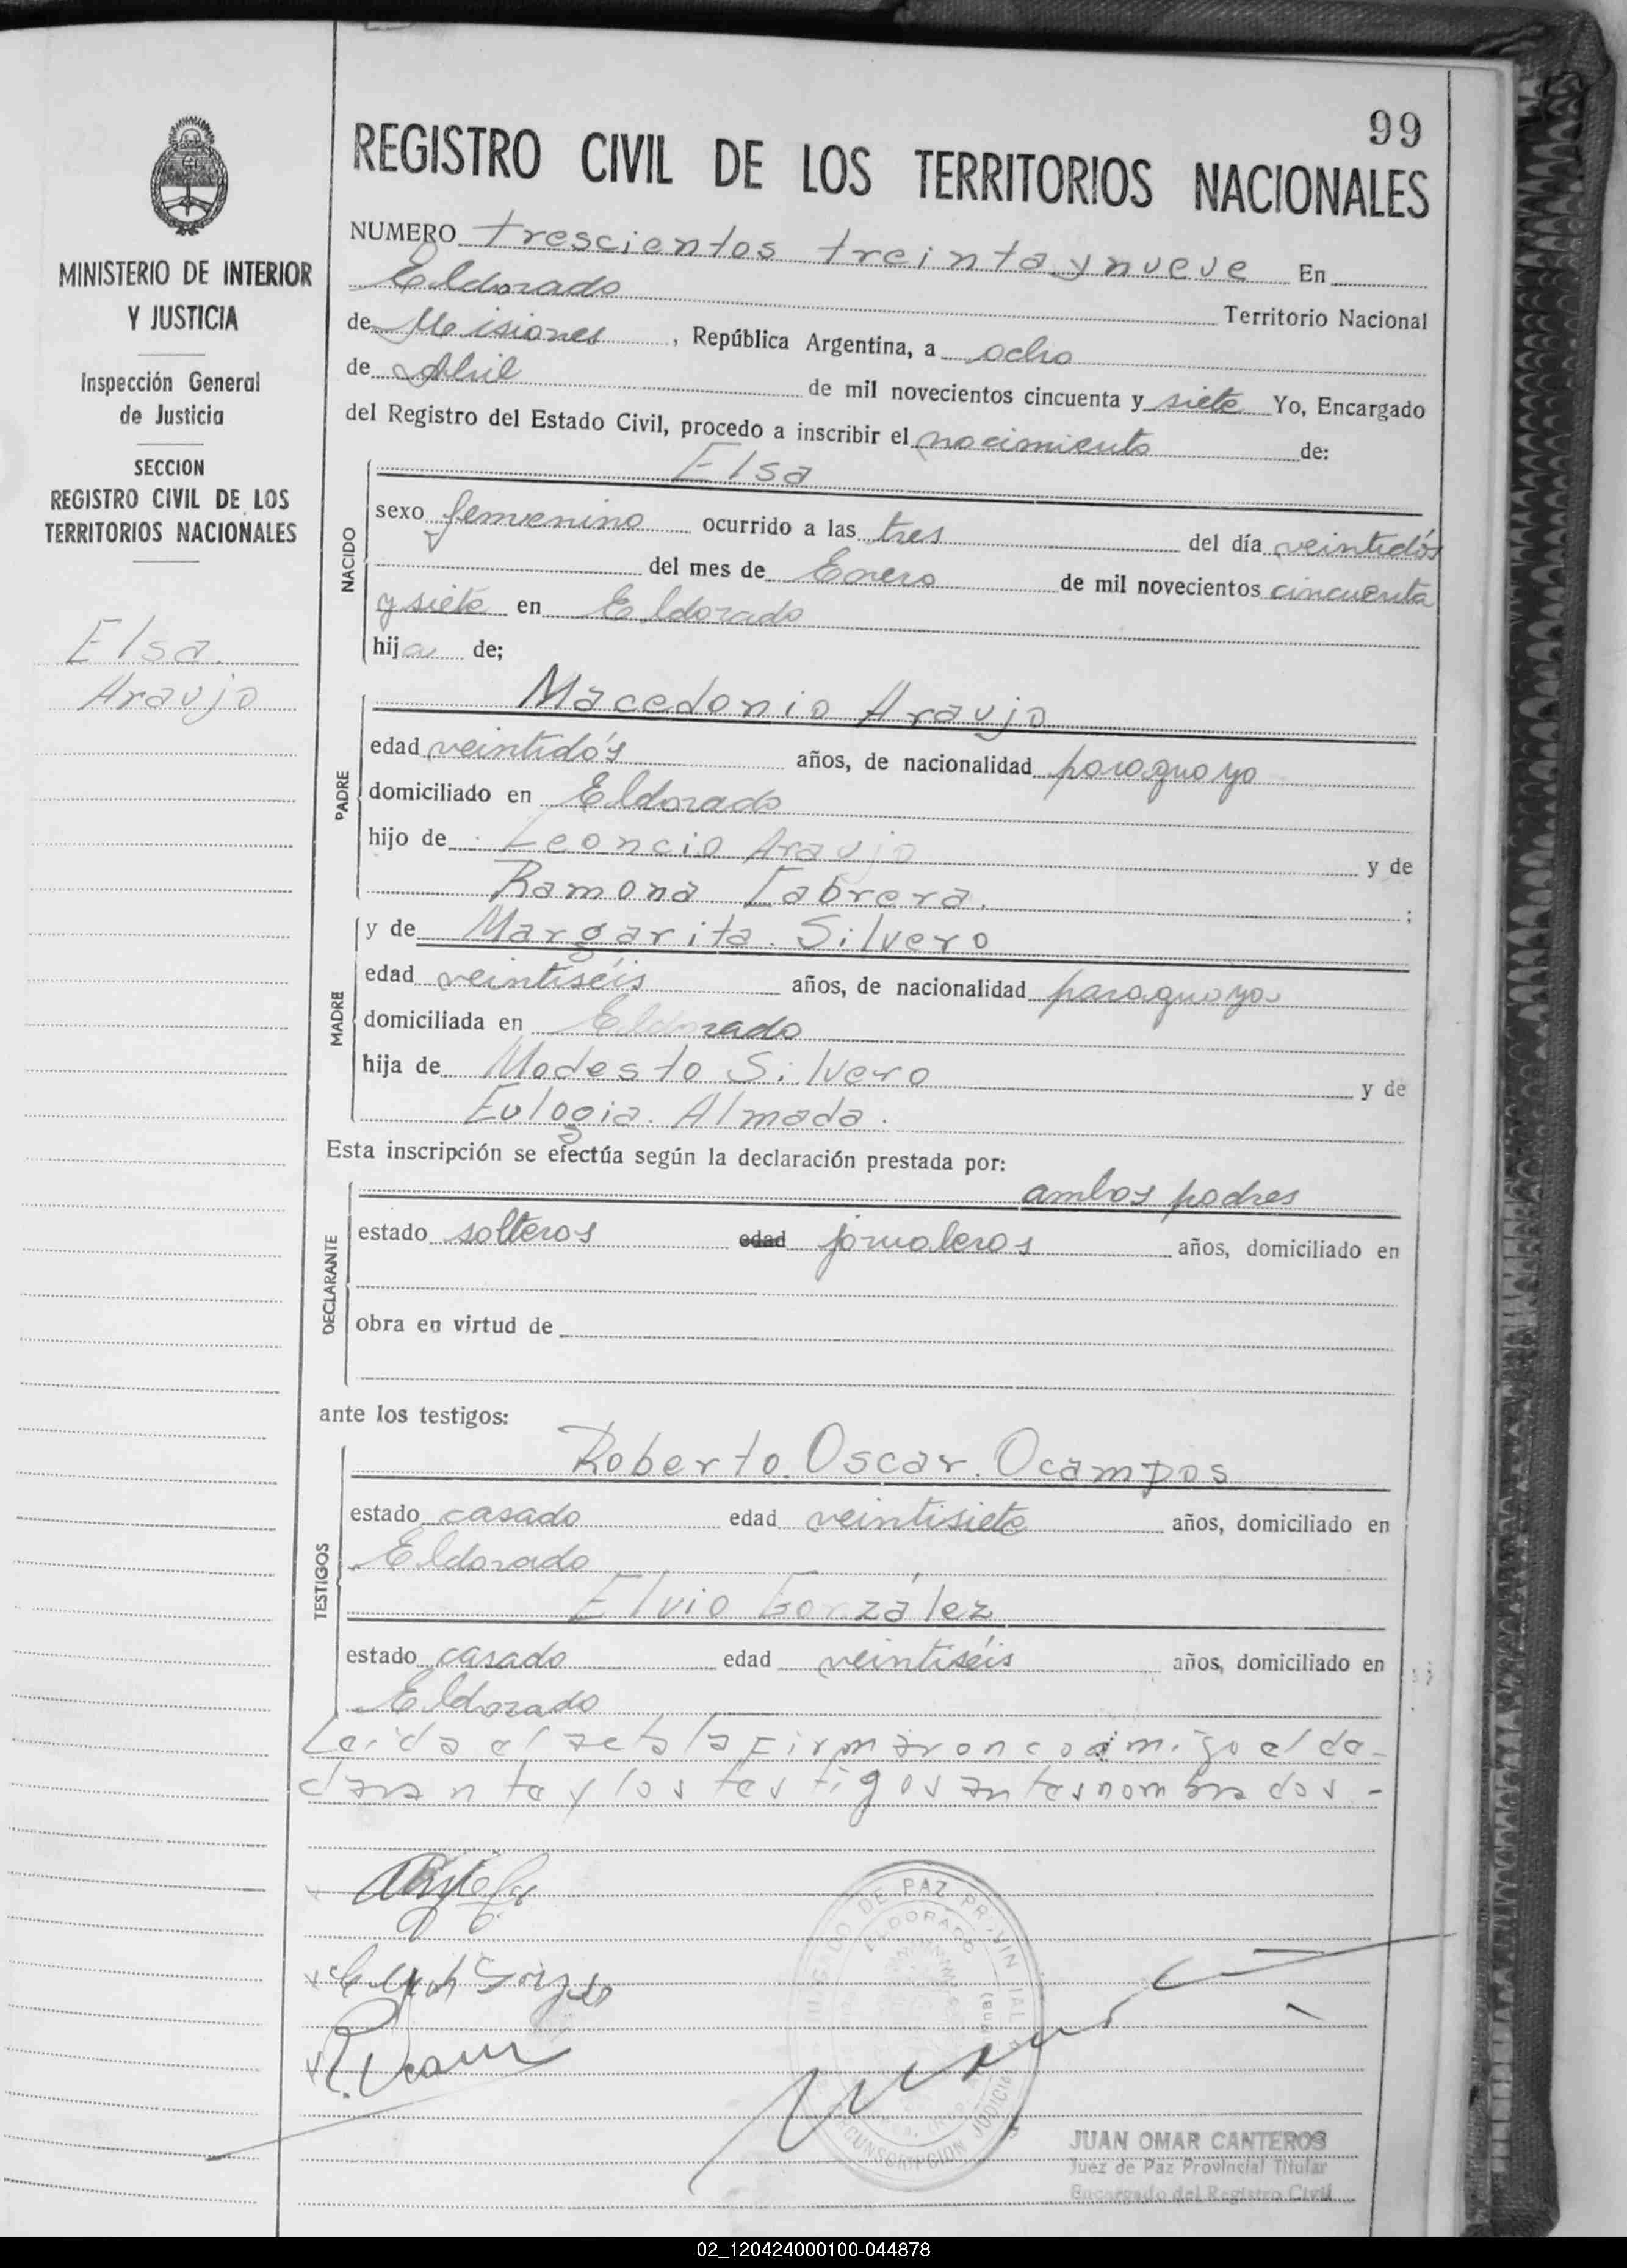 99
REGISTRO CIVIL DE LOS TERRITORIOS NACIONALES
MINISTERIO DE INTERIOR
Y JUSTICIA
Inspección General
de Justicia
SECCION
REGISTRO CIVIL DE LOS
TERRITORIOS NACIONALES
Elsa
Araujo
NUMERO trescientos treinta y nueve En
Eldorado Territorio Nacional
de Misiones, República Argentina, a ocho
de Abril de mil novecientos cincuenta y siete Yo, Encargado
del Registro del Estado Civil, procedo a inscribir el nacimiento de:
Elsa
NACIDO
sexo femenino ocurrido a las tres del día veintidós
del mes de Enero de mil novecientos cincuenta
y siete en Eldorado
hija de;
Macedonio Araujo
PADRE
edad veintidós años, de nacionalidad paraguayo
domiciliado en Eldorado
hijo de Leoncio Araujo y de
Ramona Cabrera. ;
y de Margarita Silvero
MADRE
edad veintiséis años, de nacionalidad paraguaya
domiciliada en Eldorado
hija de Modesto Silvero y de
Eulogia Almada.
Esta inscripción se efectúa según la declaración prestada por:
ambos padres
DECLARANTE
estado solteros edad jornaleros años, domiciliado en
obra en virtud de
ante los testigos:
Roberto Oscar Ocampos
TESTIGOS
estado casado edad veintisiete años, domiciliado en
Eldorado
Elvio González
estado casado edad veintiséis años, domiciliado en
Eldorado
Leida el acta la firmaron conmigo el de-
clarante y los testigos antes nombrados -
JUZGADO DE PAZ PROVINCIAL
ELDORADO
CIRCUNSCRIPCION JUDICIAL
JUAN OMAR CANTEROS
Juez de Paz Provincial Titular
Encargado del Registro Civil
02_120424000100-044878